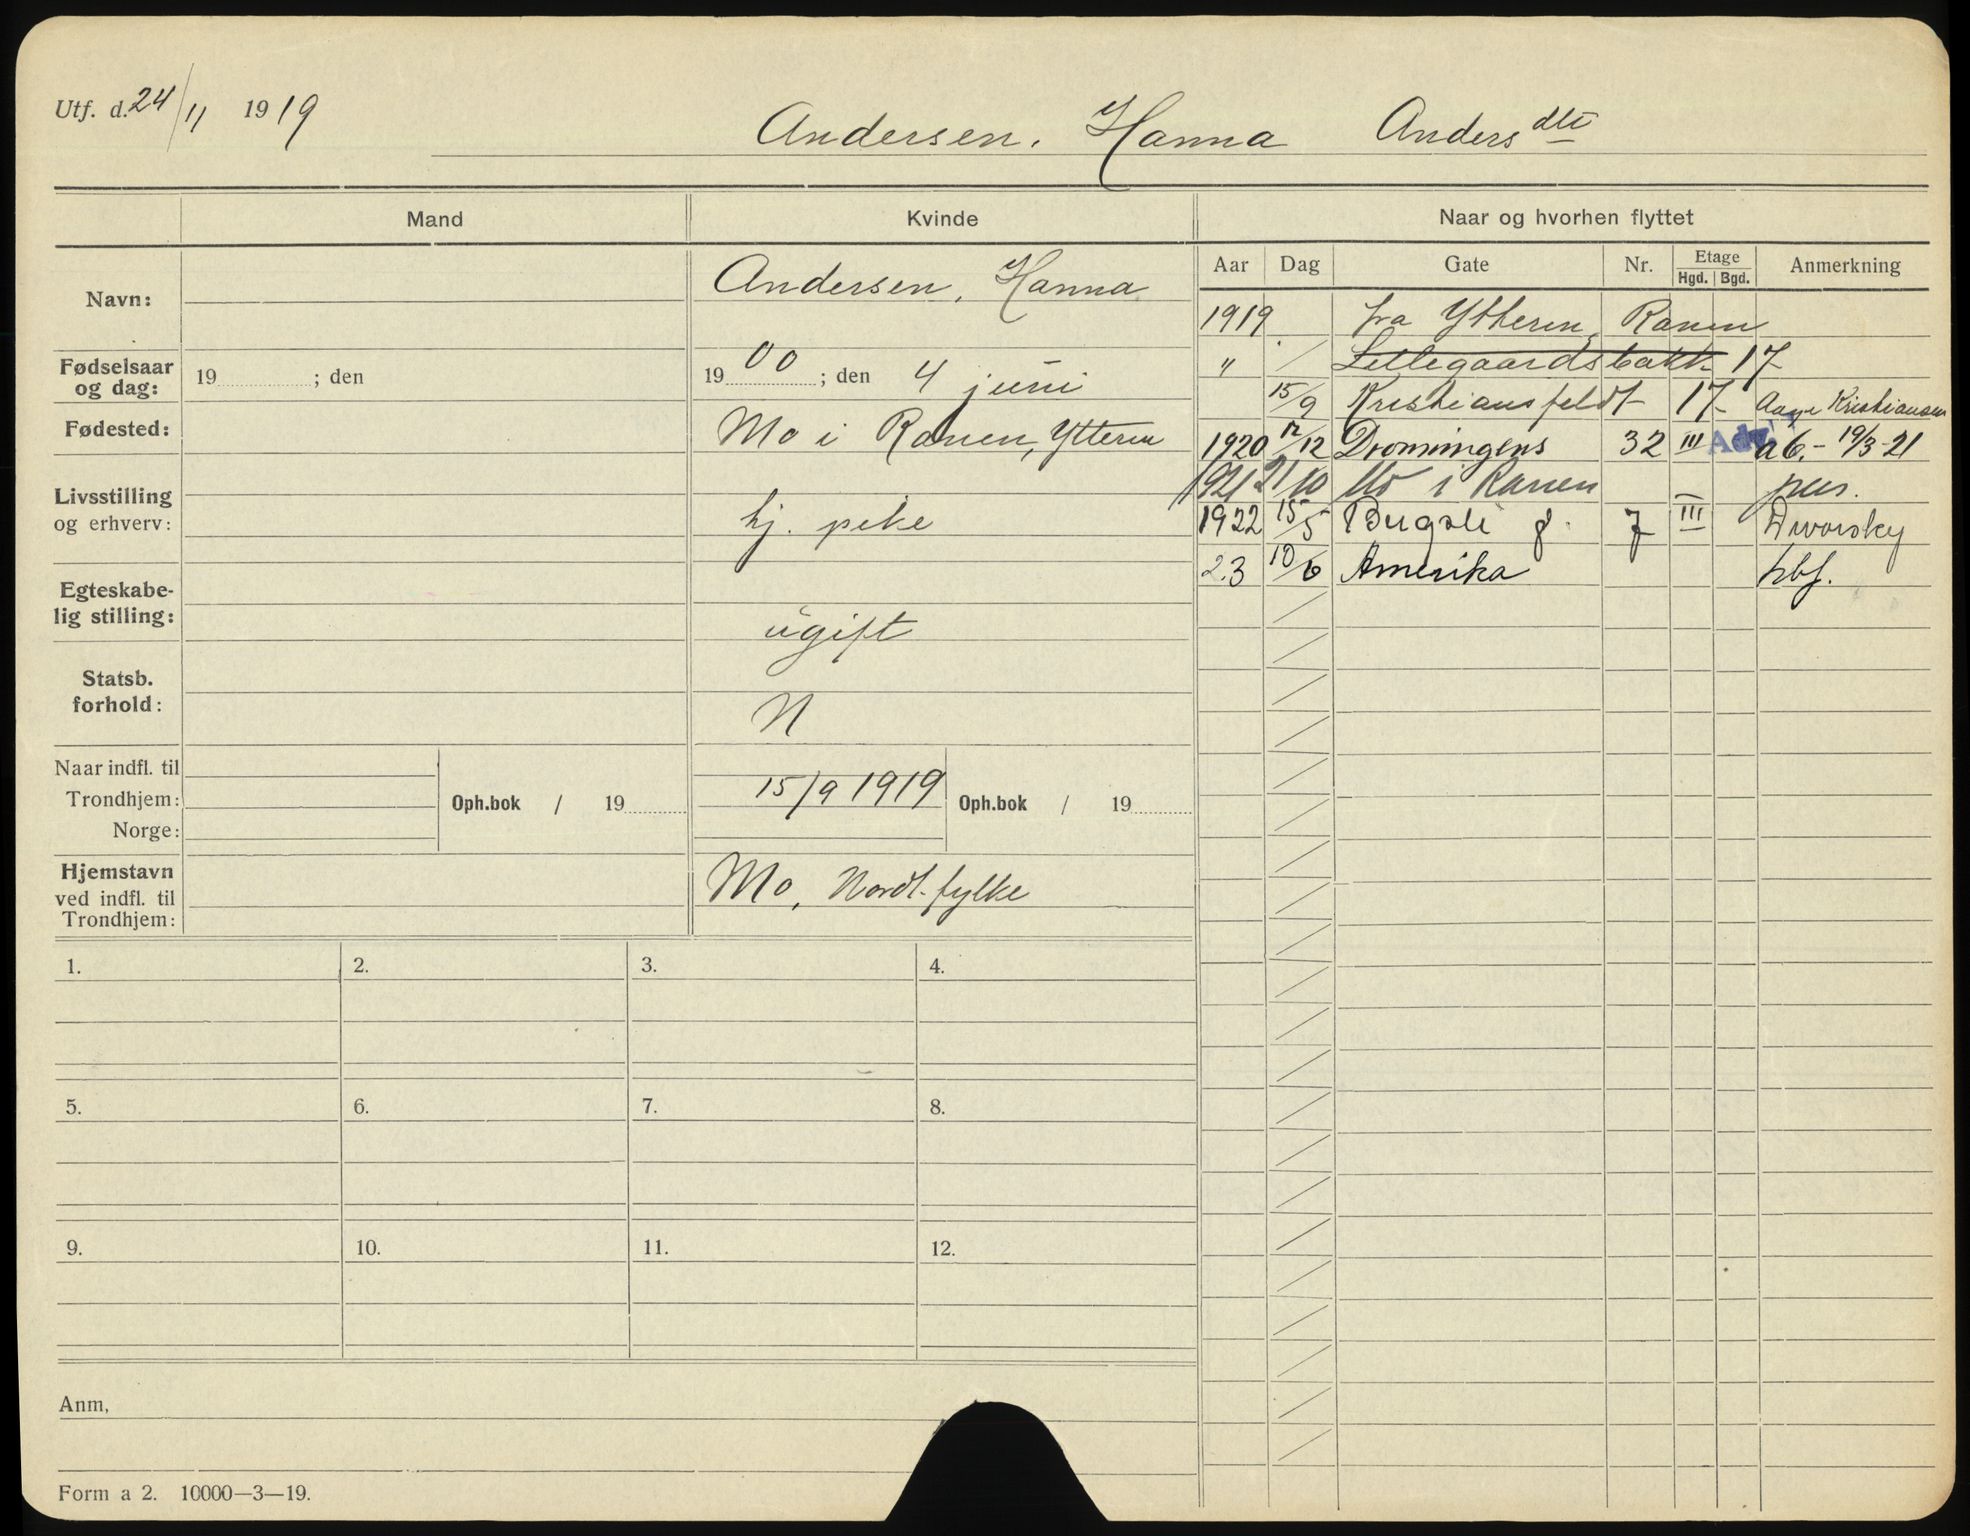 Utf. d. 24/11 1919
Andersen, Hanna Anders dtr
Mand Kvinde Naar og hvorhen flyttet
Aar Dag Gate Nr. Etage Hgd. Bgd. Anmerkning
Navn: Andersen, Hanna
Fødselsaar og dag: 19 ; den 1900 ; den 4 juni
Fødested: Mo i Ranen, Ytteren
Livsstilling og erhverv: hj. pike
Egteskabelig stilling: ugift
Statsb. forhold: N
Naar indfl. til
Trondhjem: Oph.bok / 19 15/9 1919 Oph.bok / 19
Norge:
Hjemstavn ved indfl. til Trondhjem: Mo, Nordl. fylke
1919 fra Ytteren, Ranen
" / Lillegaardsbakk. 17
15/9 Kristiansfeldt 17 Aage Kristiansen
1920 12/12 Dronningens 32 III a6.- 19/3-21
1921 21/10 Mo i Ranen
1922 15/5 Bugale g. 7 III Dworsky
23 10/6 Amerika hbf.
1. 2. 3. 4.
5. 6. 7. 8.
9. 10. 11. 12.
Anm,
Form a 2. 10000—3—19.